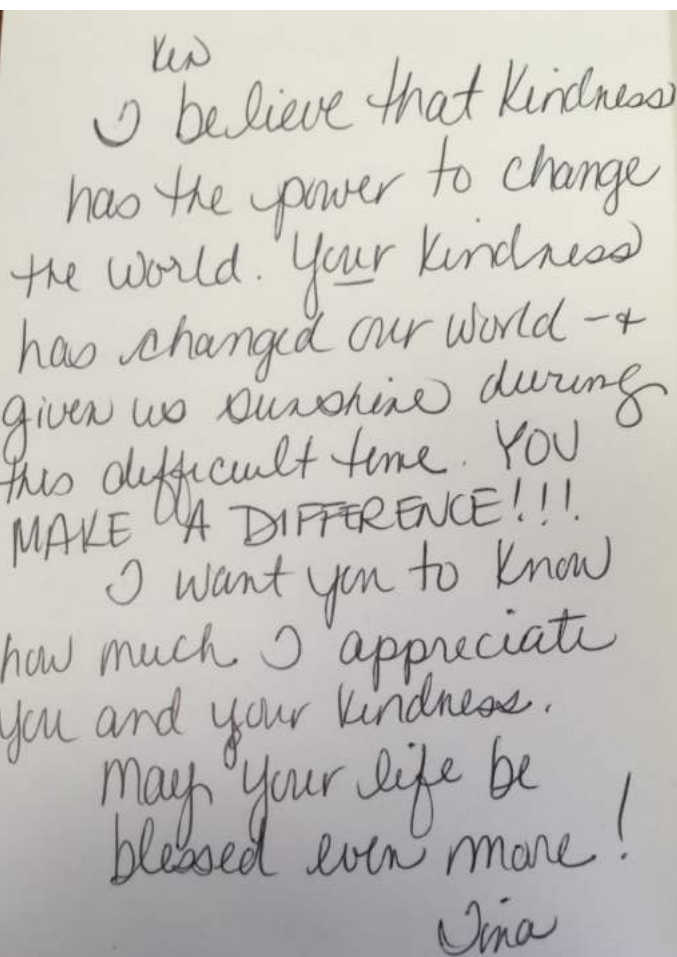 Ken
I believe that Kindness
has the power to change
the world. Your kindness
has changed our world - +
given us sunshine during
this difficult time. YOU
MAKE A DIFFERENCE!!!
I want you to know
how much I appreciate
you and your kindness.
May your life be
blessed even more!
Tina